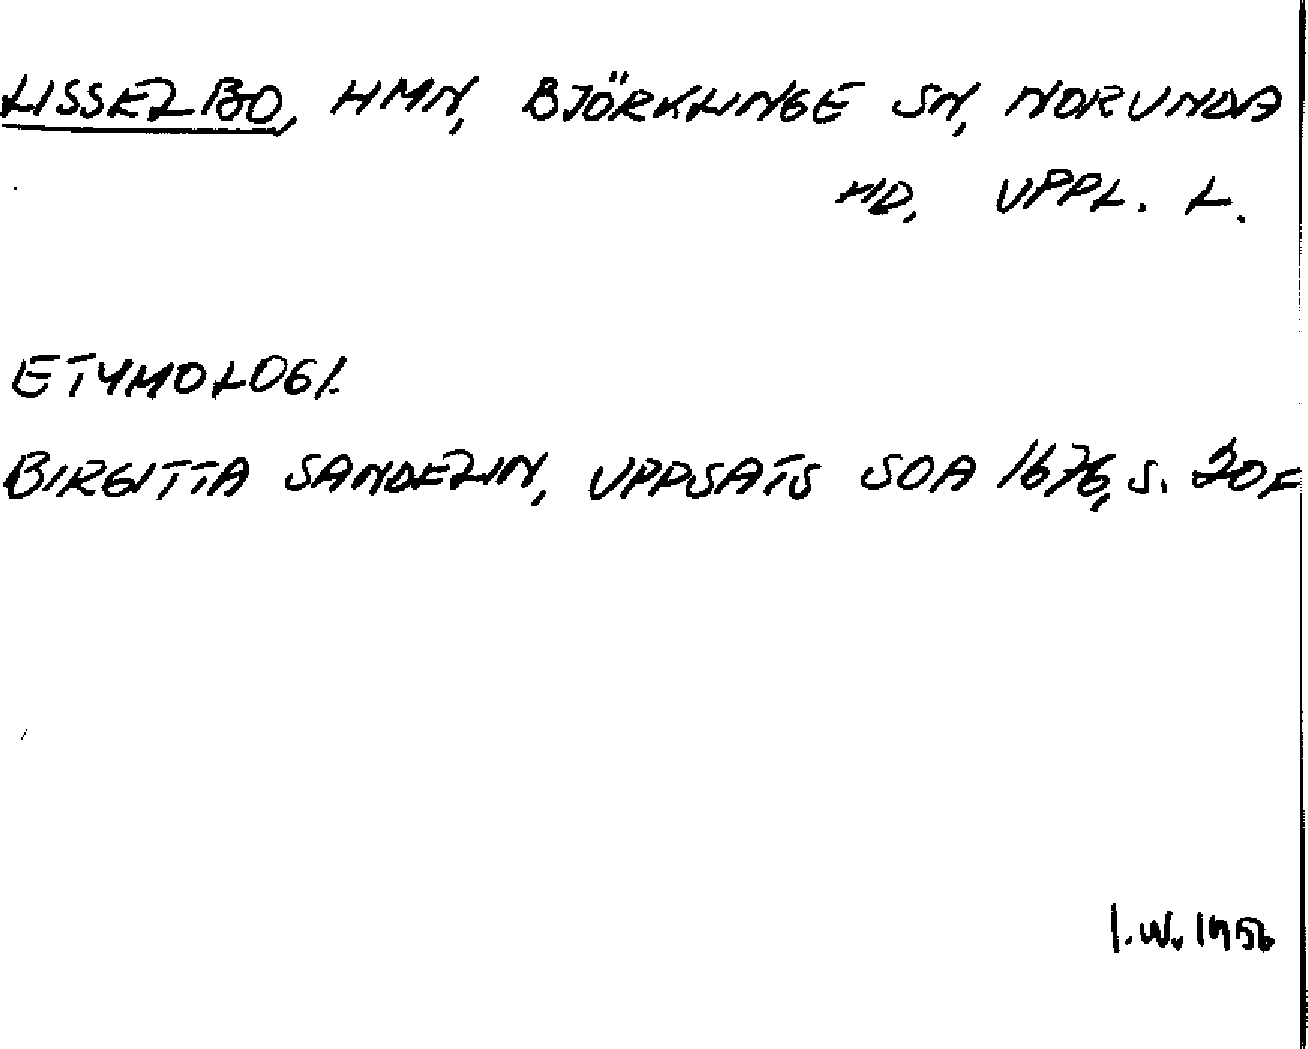 LISSELBO, HMN, BJÖRKLINGE SN, NORUNDA
HD, UPPL. L.
ETYMOLOGI.
BIRGITTA SANDELIN, UPPSATS SOA 1676, S. 20F
I.W. 1956